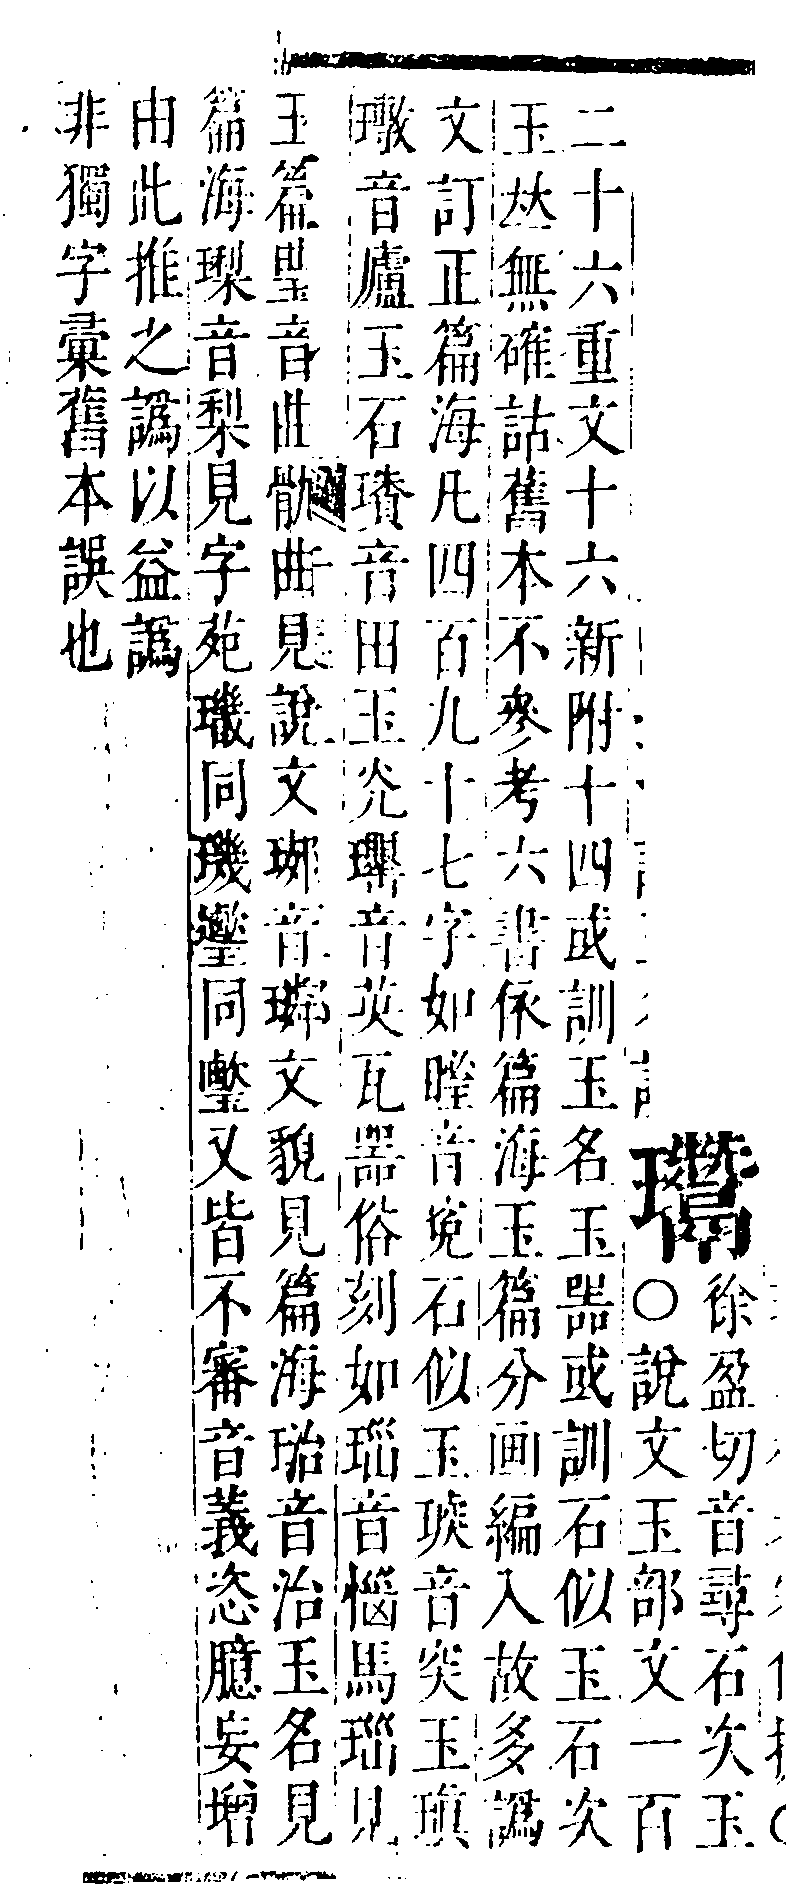 徐盈切音尋石次玉
○說文玉部文一百
二十六重文十六新附十四或訓玉名玉器或訓石似玉石次
玉𠀤無確詁舊本不參考六書依篇海玉篇分画編入故多譌
文訂正篇海凡四百九十七字如音石似玉音突玉瑱
音廬玉石音田玉灮音英瓦器俗刻如瑙音惱馬瑙見
玉篇音曲骫曲見說文音璘文貌見篇海珆音治玉名見
篇海音梨見字苑同璣同又皆不審音義恣臆妄增
由此推之譌以益譌
非獨字彙舊本誤也